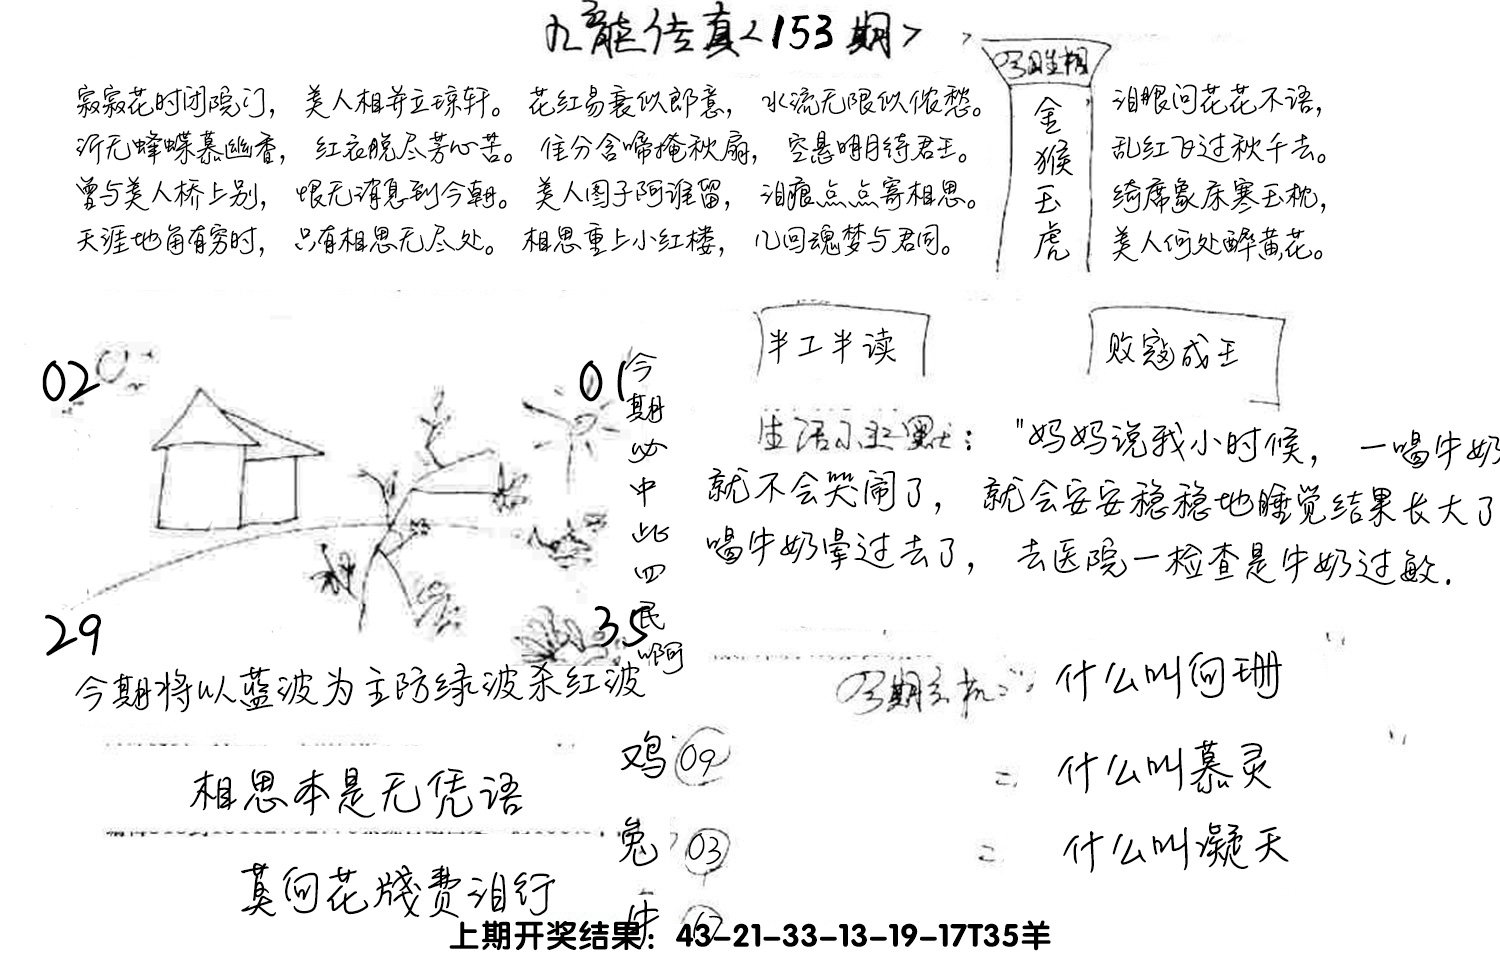 九龙传真<153期>
今期生相
金猴玉虎
寂寂花时闭院门，美人相并立琼轩。花红易衰似郎意，水流无限似侬愁。
泪眼问花花不语，
沂无蜂蝶慕幽香，红衣脱尽芳心苦。佳分含啼掩秋扇，空悬明月待君王。
乱红飞过秋千去。
曾与美人桥上别，恨无消息到今朝。美人图子阿谁留，泪痕点点寄相思。
绮席象床寒玉枕，
天涯地角有穷时，只有相思无尽处。相思重上小红楼，几回魂梦与君同。
美人何处醉黄花。
半工半读
败寇成王
02
01
29
35
今期必中此四民啊
生活小幽默："妈妈说我小时候，一喝牛奶
就不会哭闹了，就会安安稳稳地睡觉结果长大了
喝牛奶晕过去了，去医院一检查是牛奶过敏.
今期将以蓝波为主防绿波杀红波
今期玄机：什么叫向珊
什么叫慕灵
什么叫凝天
相思本是无凭语
莫向花牋费泪行
鸡 09
兔 03
牛
上期开奖结果：43-21-33-13-19-17T35羊